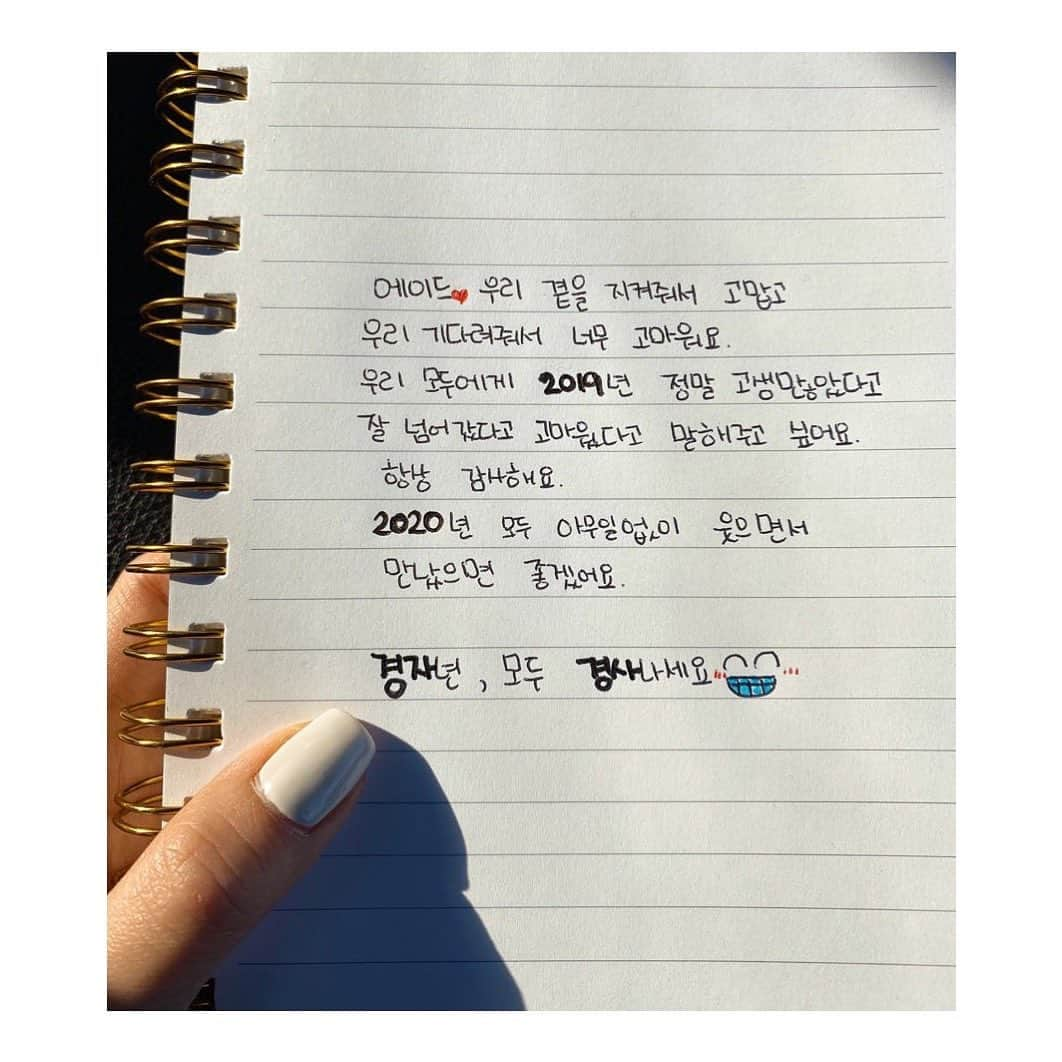 에이드 우리 곁을 지켜줘서 고맙고
우리 기다려줘서 너무 고마워요.
우리 모두에게 2019년 정말 고생많았다고
잘 넘어갔다고 고마웠다고 말해주고 싶어요.
항상 감사해요.
2020년 모두 아무일없이 웃으면서
만났으면 좋겠어요.
경자년, 모두 경사나세요